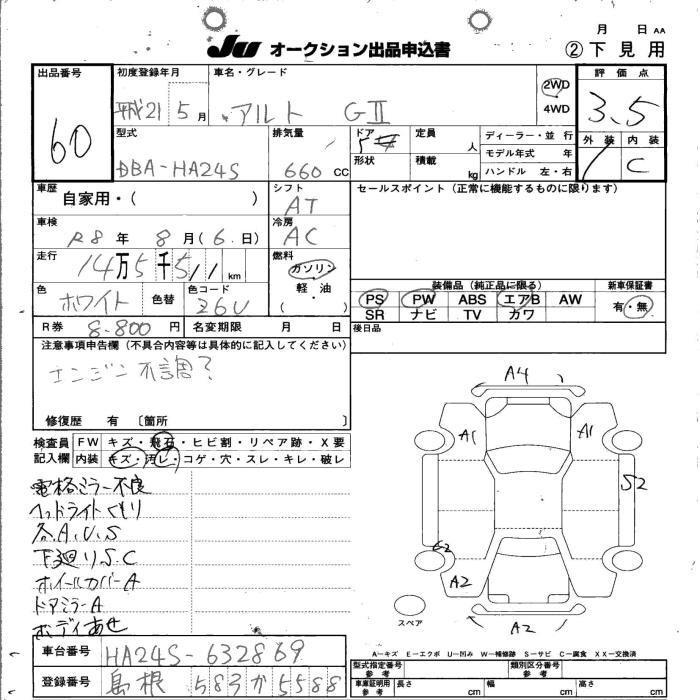 月 日 AA
JU オークション出品申込書 ②下見用
出品番号 初度登録年月 車名・グレード 評価点
60 平成21 5月 アルト GⅡ 2WD 4WD 3.5
型式 排気量 ドア 定員 人 ディーラー・並 行 外装 内装
DBA-HA24S 660 CC 5 形状 積載 kg モデル年式 年 C
ハンドル 左・右
車歴 シフト セールスポイント(正常に機能するものに限ります)
自家用・( ) AT
車検 冷房
R8 年 8 月(6 日) AC
走行 燃料
14万5千511km ガソリン
軽・油
( )
色 色コード 装備品(純正品に限る) 新車保証書
ホワイト 色替 26U PS PW ABS エアB AW 有・無
SR ナビ TV カワ
R券 8.800 円 名変期限 月 日 後日品
注意事項申告欄(不具合内容等は具体的に記入してください)
エンジン不調?
修復歴 有 〔箇所 〕
検査員 FW キズ・飛石・ヒビ割・リペア跡・X要
記入欄 内装 キズ・汚レ・コゲ・穴・スレ・キレ・破レ
電格ミラー不良
ヘッドライトくもり
各A,U,S
下廻りS.C
ホイールカバーA
ドアミラーA
ボディあせ
A4
A1 A1
S2
A2
A2
スペア
A-キズ E-エクボ U-凹み W-補修跡 S-サビ C-腐食 XX-交換済
車台番号 HA24S-632869
登録番号 島根 583か5588
型式指定番号 参考 類別区分番号 参考
車庫証明用 参考 長さ cm 幅 cm 高さ cm